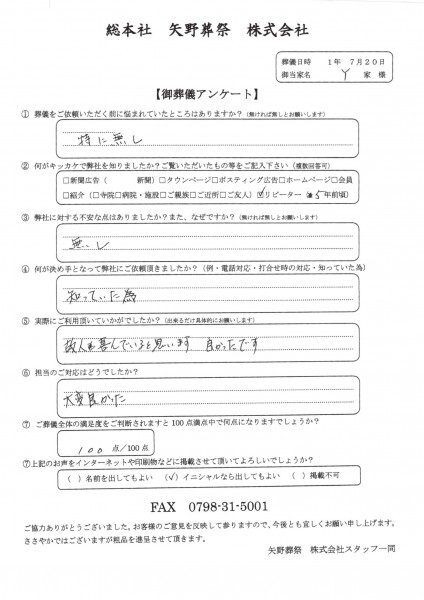 総本社 矢野葬祭 株式会社
葬儀日時 1年 7月20日
御当家名 Y 家 様
【御葬儀アンケート】
① 葬儀をご依頼いただく前に悩まれていたところはありますか？(無ければ無しとお願いします)
特に無し
② 何がキッカケで弊社を知りましたか？ご覧いただいたもの等をご記入下さい（複数回答可）
□新聞広告（ 新聞）□タウンページ□ポスティング広告□ホームページ□会員
□紹介（□寺院□病院・施設□ご親族□ご近所□ご友人）☑リピーター（5年前頃）
③ 弊社に対する不安な点はありましたか？また、なぜですか？（無ければ無しとお願いします）
無し
④ 何が決め手となって弊社にご依頼頂きましたか？（例・電話対応・打合せ時の対応・知っていた為）
知っていた為
⑤ 実際にご利用頂いていかがでしたか？（出来るだけ具体的にお願いします）
故人も喜んでいると思います 良かったです
⑥ 担当のご対応はどうでしたか？
大変良かった
⑦ ご葬儀全体の満足度をご判断されますと100点満点中で何点になりますでしょうか？
100 点/100点
⑦上記のお声をインターネットや印刷物などに掲載させて頂いてよろしいでしょうか？
（ ）名前を出してもよい （√）イニシャルなら出してもよい （ ）掲載不可
FAX 0798-31-5001
ご協力ありがとうございました。お客様のご意見を反映して参りますので、今後とも宜しくお願い申し上げます。
ささやかではございますが粗品を進呈させて頂きます。
矢野葬祭 株式会社スタッフ一同